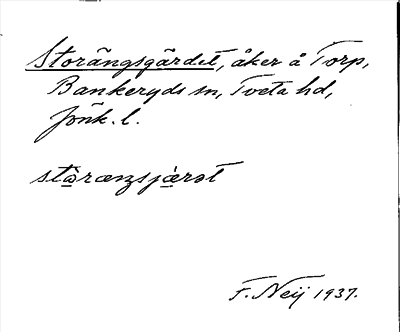 Storängsgärdet, åker å Torp,
Bankeryds sn, Tveta hd,
Jönk. l.
stòrænsjæ̀rət
F. Neij 1937.